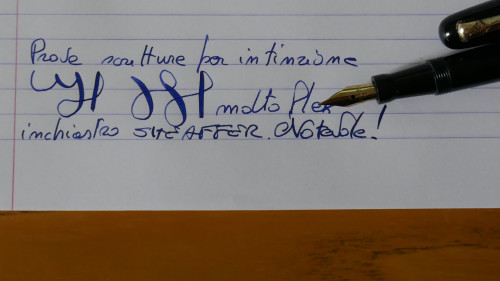 Prove scritture per intinzione
molto flex
inchiostro SHEAFFER. Notevole!